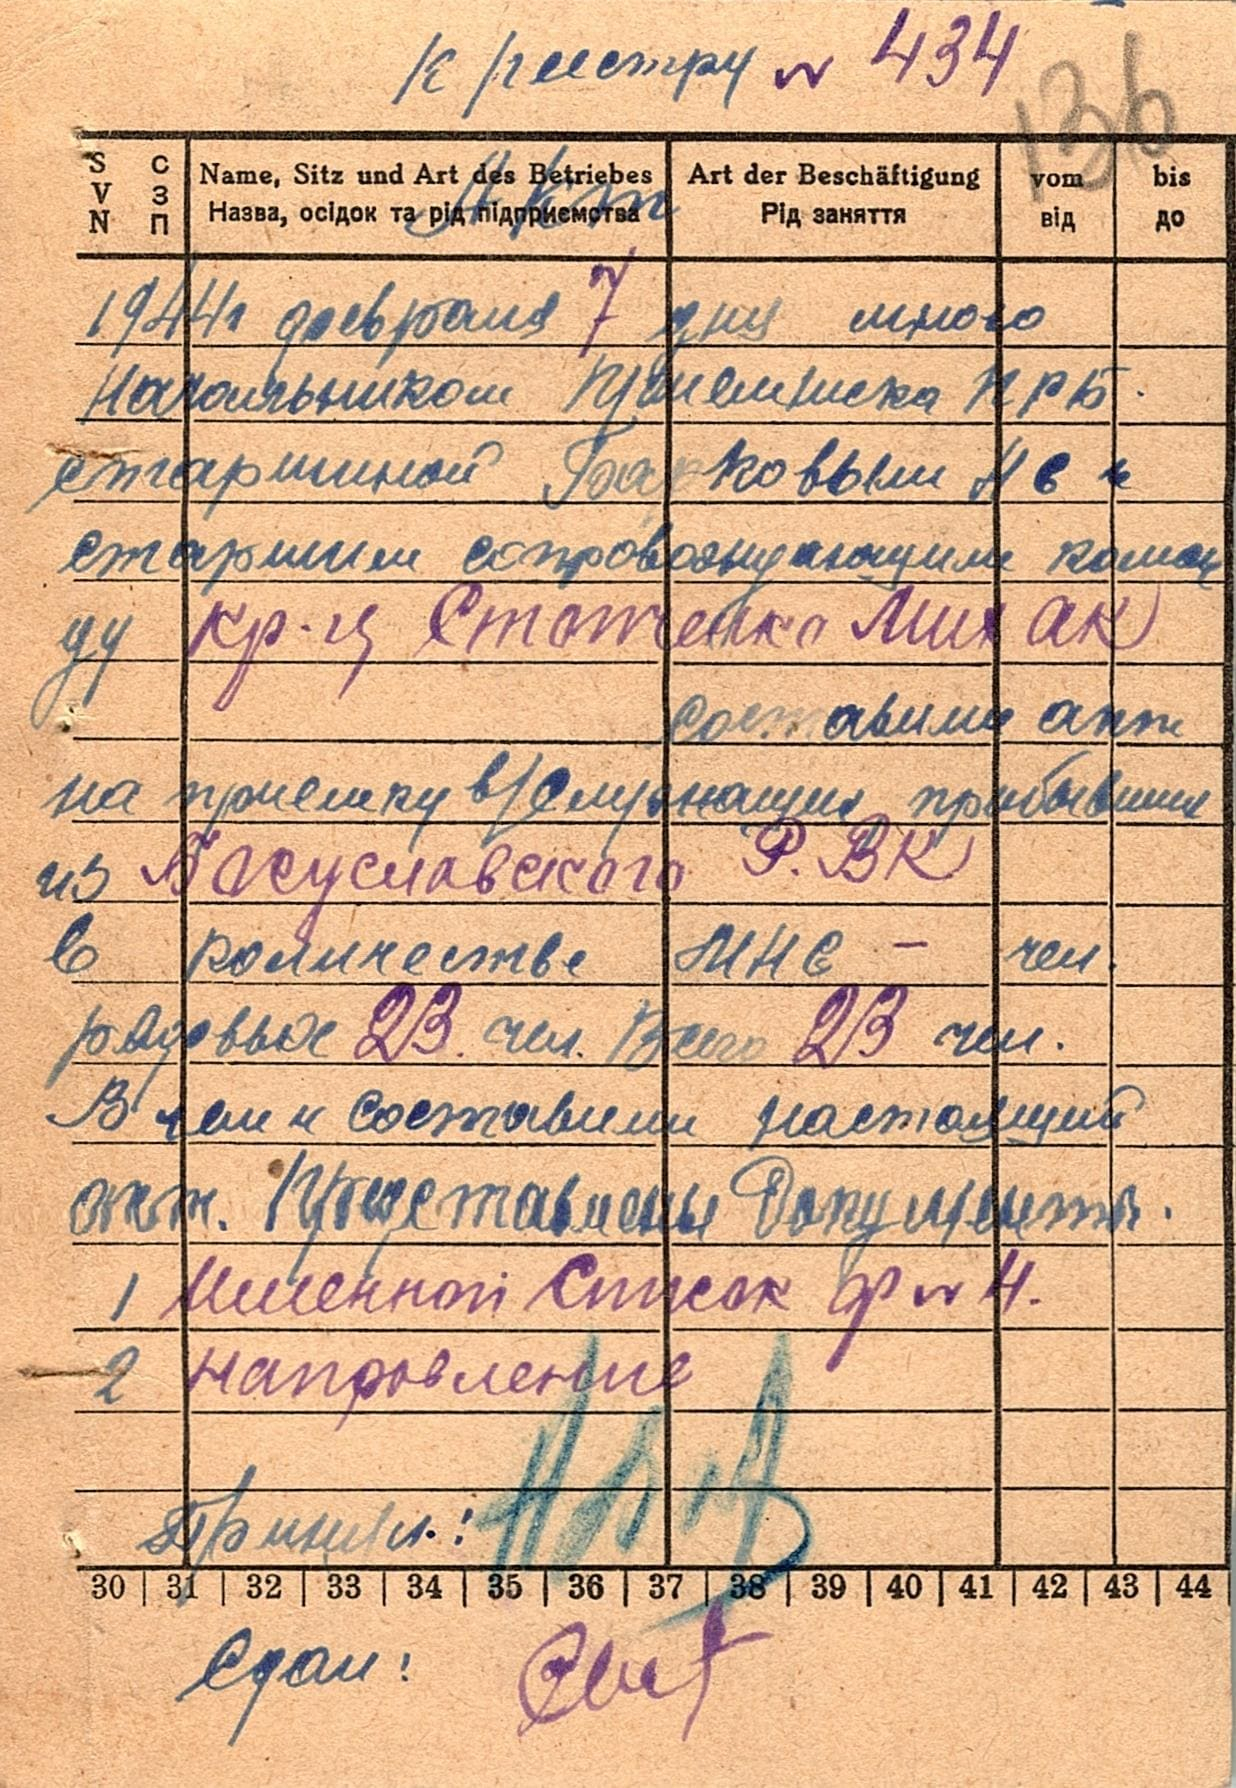 к реестру № 434
136
S V N
С З П
Name, Sitz und Art des Betriebes
Назва, осідок та рід підприємства
Art der Beschäftigung
Рід заняття
vom
від
bis
до
Акт
1944г февраля 7 дня мною
Начальником Приемписка ПРБ.
старшиной и
старшим сопровождающим коман
ду кр-ц Михак
составили акт
на приемку в/служащих прибывших
из Богуславского Р.ВК
в количестве МНС – чел.
рядовых 23 чел. Всего 23 чел.
В чем и составили настоящий
акт. Представлены Документы.
1 Именной Список ф № 4.
2 направление
Принял:
30 | 31 | 32 | 33 | 34 | 35 | 36 | 37 | 38 | 39 | 40 | 41 | 42 | 43 | 44 |
Сдал: